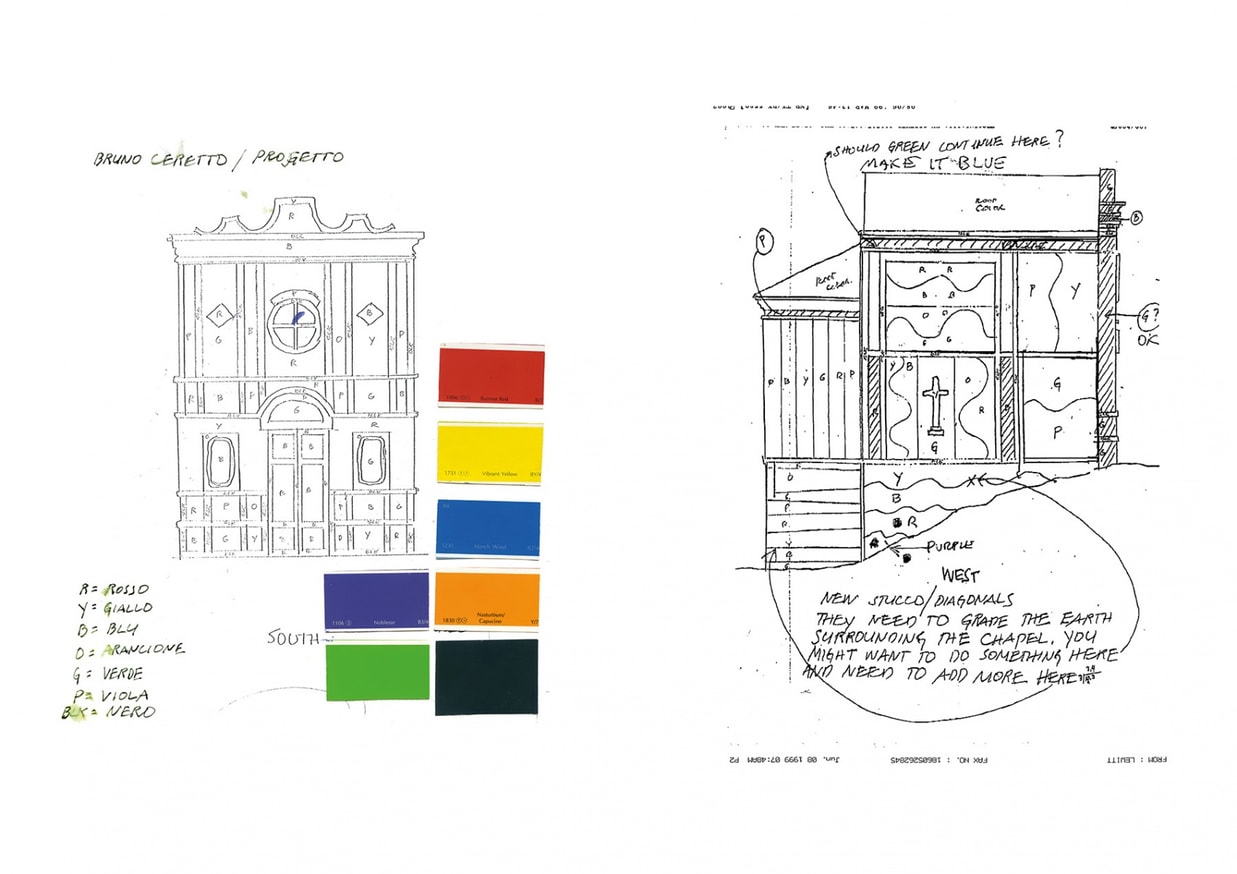 BRUNO CERETTO / PROGETTO
Y
R
BLK
B
R
G
B
Y
P
O
P
R
B
P
R
P
G
B
G
Y
R
B
B
G
B
B
R
P
O
P
B
G
B
G
Y
R
O
Y
R
R = ROSSO
Y = GIALLO
B = BLU
O = ARANCIONE
G = VERDE
P = VIOLA
BLK = NERO
SOUTH
1731
Vibrant Yellow
1106
Noblesse
1830
Nasturtium/
Capucine
SHOULD GREEN CONTINUE HERE?
MAKE IT BLUE
ROOF
COLOR
B
P
ROOF
COLOR
R R
B B
O O
G G
P
Y
G?
OK
P B Y G R P
Y B
O
R
G
G
P
O
Y
B
R
PURPLE
WEST
NEW STUCCO/DIAGONALS
THEY NEED TO GRADE THE EARTH
SURROUNDING THE CHAPEL. YOU
MIGHT WANT TO DO SOMETHING HERE
AND NEED TO ADD MORE HERE
FROM : LEWITT
FAX NO. : 18605262845
Jun. 08 1999 07:48AM P2